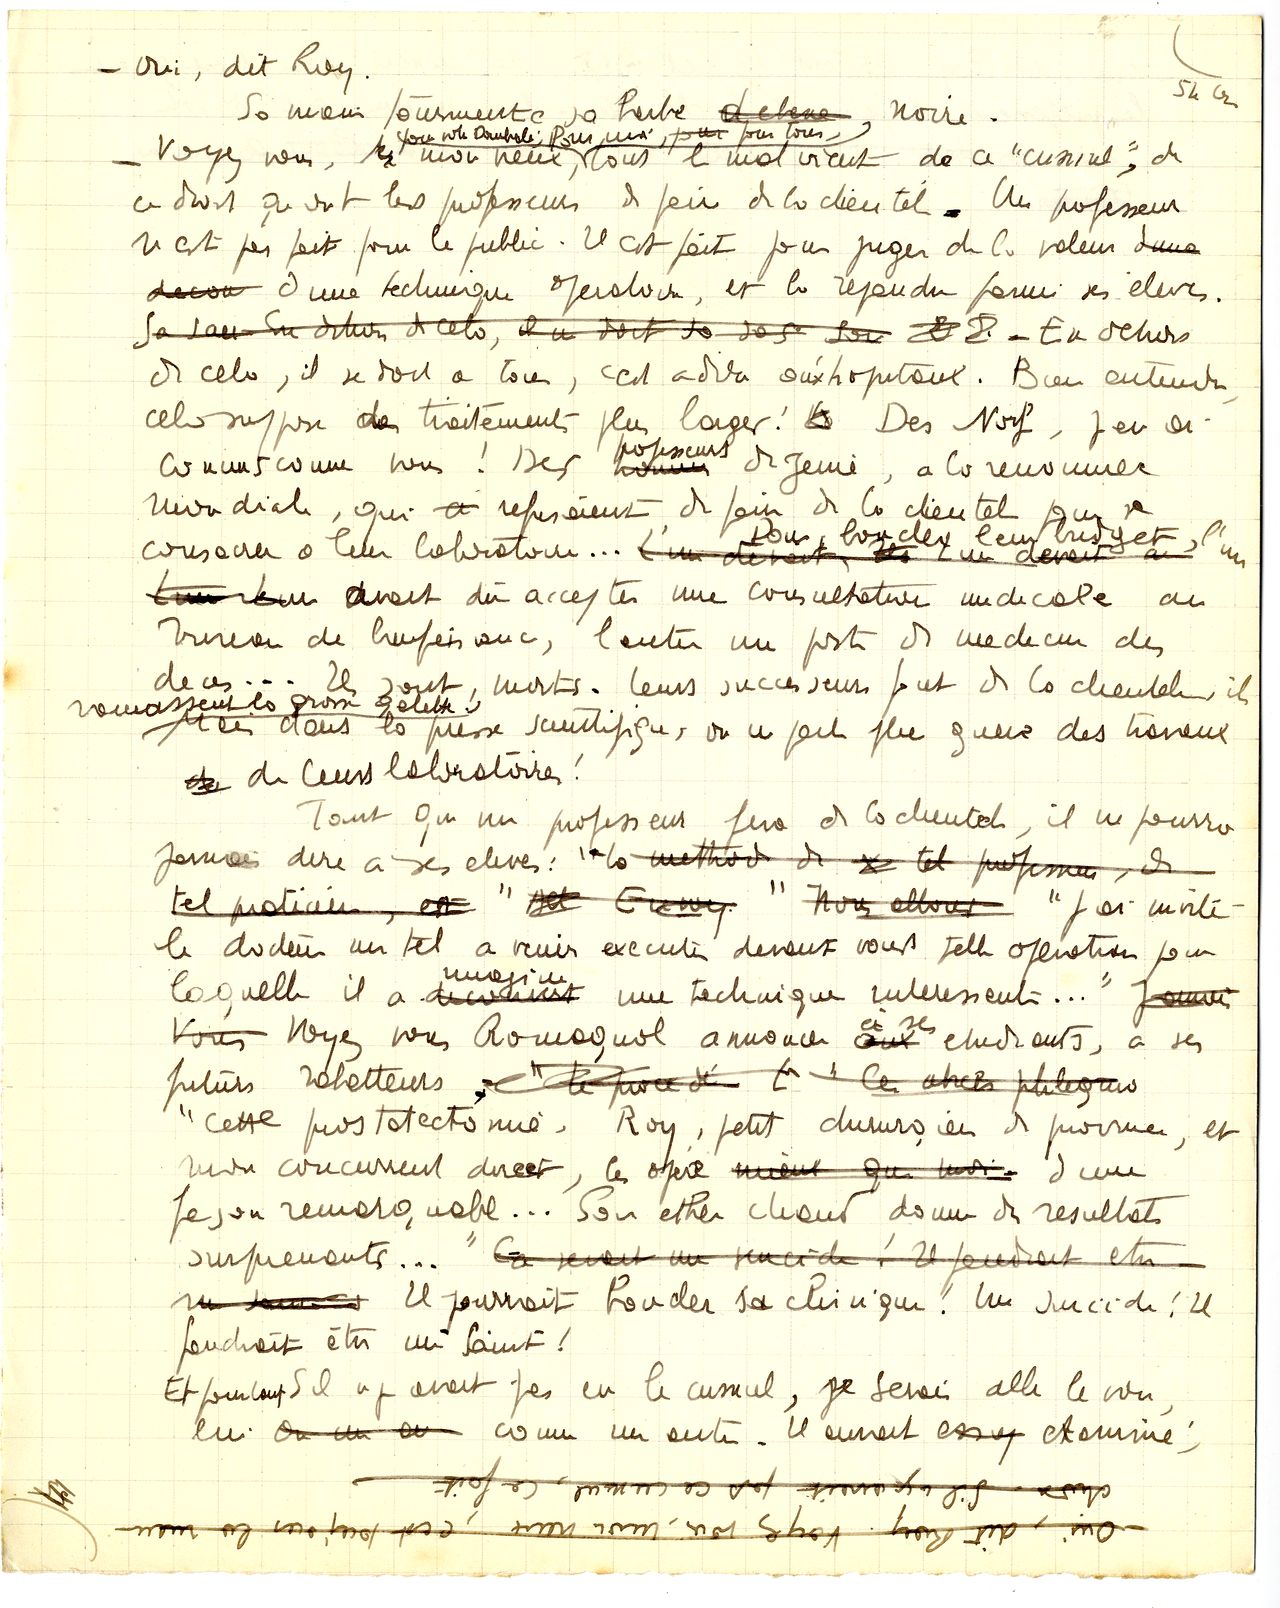 – Oui, dit Roy.
Sa main tourmente sa barbe noire.
pour votre Dombali; Pour moi, pour pour tous,
– Voyez vous, mon vieux, tout le mal vient de ce "cumul", de
ce droit qu'ont les professeurs de faire de la clientele. Un professeur
n'est pas fait pour le public. Il est fait pour juger de la valeur d'une
d'une technique operatoire, et la repandre parmi ses eleves.
Sa En dehors de cela, il se doit – En dehors
de cela, il se doit a tous, c'est a dire aux hopitaux. Bien entendu,
cela suppose des traitements plus larges! Des Noif, j'en ai
connus comme vous! Des professeurs de genie, a la renommee
mondiale, qui refusaient de faire de la clientel pour se
consacrer a leur laboratoire... Pour boucler leur budget, l'un
avait dû accepter une consultation medicale au
bureau de bienfaisance, l'autre un poste de medecin des
deces... Ils sont morts. Leurs successeurs font de la clientele, ils
ramassent la grosse galette!
Mais dans la presse scientifique, on ne parle plus guere des travaux
de leurs laboratoires!
Tant qu'un professeur fera de la clientele, il ne pourra
jamais dire a ses eleves: "la methode de tel professeur, de
tel praticien, est " " Nous allons "J'ai invité
le docteur un tel a venir executer devant vous telle operation pour
imaginé
laquelle il a decouvert une technique interessante..." Jamais
Vous Voyez vous Romagnol annoncer à ses etudiants, a ses
futurs rabatteurs "le procedé "Ces abces phlegmo
"Cette prostatectomie. Roy, petit chirurgien de province, et
mon concurrent direct, les opère mieux que moi. d'une
façon remarquable... Son ether chaud donne des resultats
surprenants..." Ce serait un suicide! Il faudrait etre
Il pourrait boucler sa clinique! Un suicide! Il
faudrait être un Saint!
Et pourtant S'il n'y avait pas eu le cumul, je serais allé le voir,
lui comme un autre. Il aurait examiné,
chose. S'il n'y avait pas ce cumul, ce fait
– Oui, dit Roy. Voyez vous, mon vieux, c'est toujours la meme